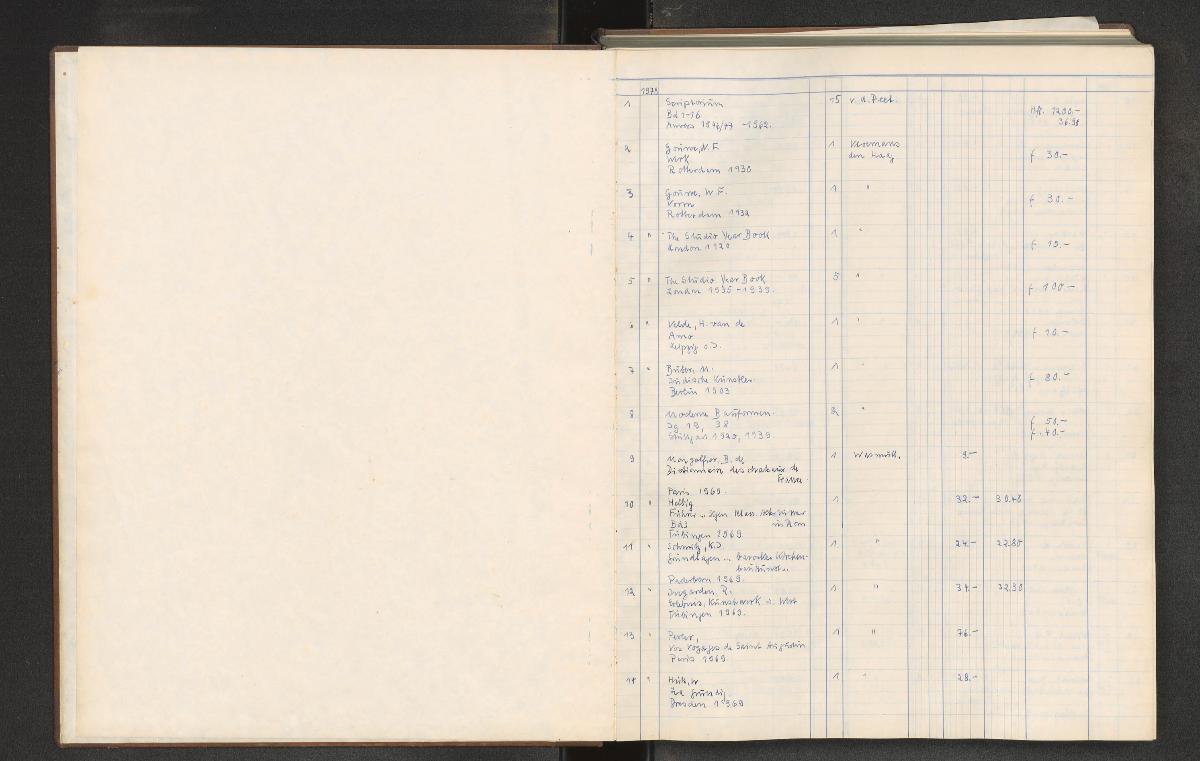 1970
1 Scriptorium 15 v. d. Peet.
Bd 1-16 Hfl. 1200.-
Anvers 1946/47 - 1962.
2 Gouwe, W. F. 1 Kermans f 30.-
Werk den Haag
Rotterdam 1930
3 Gouwe, W. F. 1 " f 30.-
Vorm
Rotterdam 1932
4 " The Studio Year Book 1 " f 15.-
London 1920
5 " The Studio Year Book 5 " f 100.-
London 1935-1939.
6 " Velde, H. van de 1 " f 10.-
Amo
Leipzig o.J.
7 " Buber, M. 1 " f 80.-
Jüdische Künstler
Berlin 1903
8 Moderne Bauformen. 2 " f 50.-
Jg 19, 38 f 40.-
Stuttgart 1920, 1939.
9 Montgolfier, B. de 1 Wasmuth. 9.-
Dictionnaire des chateaux de
France
Paris 1969.
10 " Helbig 1 32.- 30.40
Führer .. 
Bd 3 in Rom
Tübingen 1969
11 " Schmitz, K.J. 1 " 24.- 22.80
Grundlagen ... barocker Kirchen-
baukunst..
Paderborn 1969.
12 " Ingarden, R. 1 " 34.- 32.30
Erlebnis, Kunstwerk u. Wert
Tübingen 1969.
13 " 1 " 76.-
Les voyages de Saint Augustin
Paris 1969.
14 " Hütt, W. 1 " 28.-
Lea Grundig
Dresden 1969